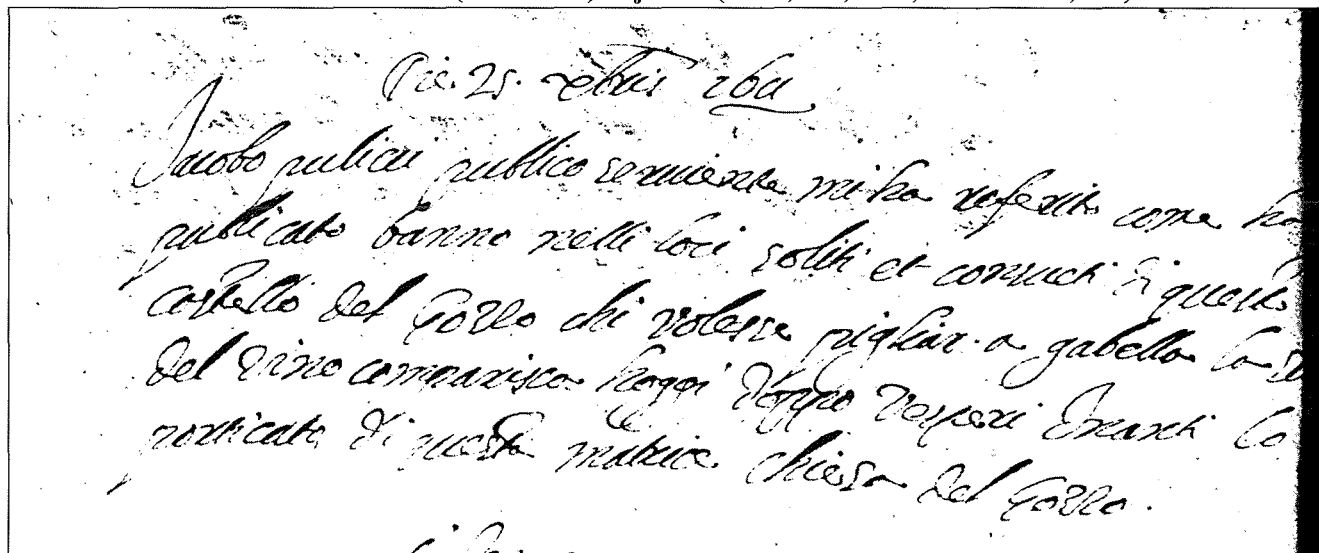 Die. 25. xbris 1611
Jacobo pulici publico serviente mi ha referito come ha
publicato banno nelli loci soliti et consueti di questo
castello del Gozzo chi volesse pigliar a gabella la
del vino comparisca hoggi doppo vesperi inanti lo
porticato di questa matrice chiesa del Gozzo.